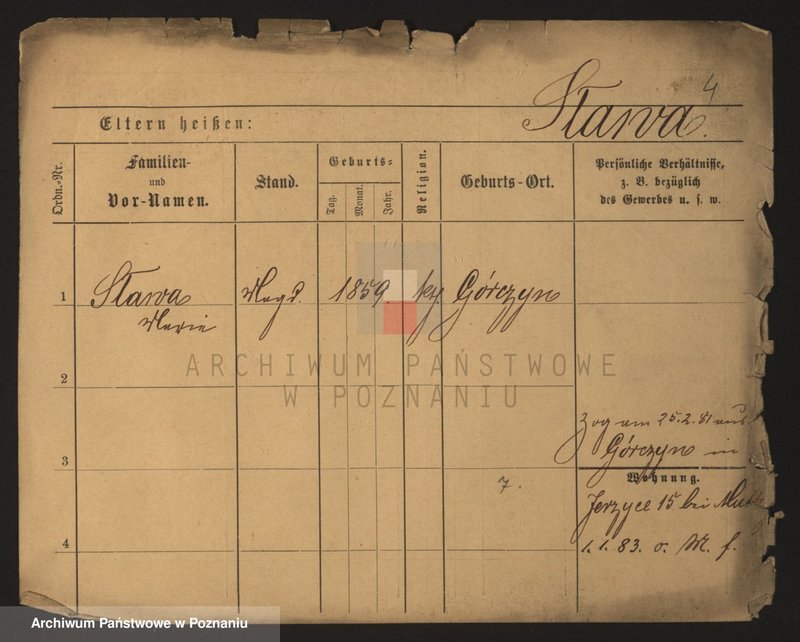 4
Stawa.
Eltern heißen:
Ordn.-Nr.
Familien-
und
Vor-Namen.
Stand.
Geburts-
Tag.
Monat.
Jahr.
Religion.
Geburts-Ort.
Persönliche Verhältnisse,
z. B. bezüglich
des Gewerbes u. s. w.
1 Stawa Magd. 1859 Górczyn
Marie
ARCHIWUM PAŃSTWOWE
W POZNANIU
2
zog am 25.2.81 aus
Górczyn in
3
Wohnung.
7.
Jerzyce 15 bei
4
1.1.83. o. M. f.
Archiwum Państwowe w Poznaniu